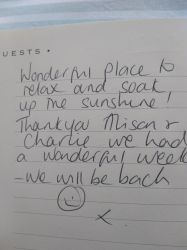 UESTS •
Wonderful place to
relax and soak
up the sunshine!
Thankyou Alison &
Charlie we had
a wonderful week
- we will be back
x